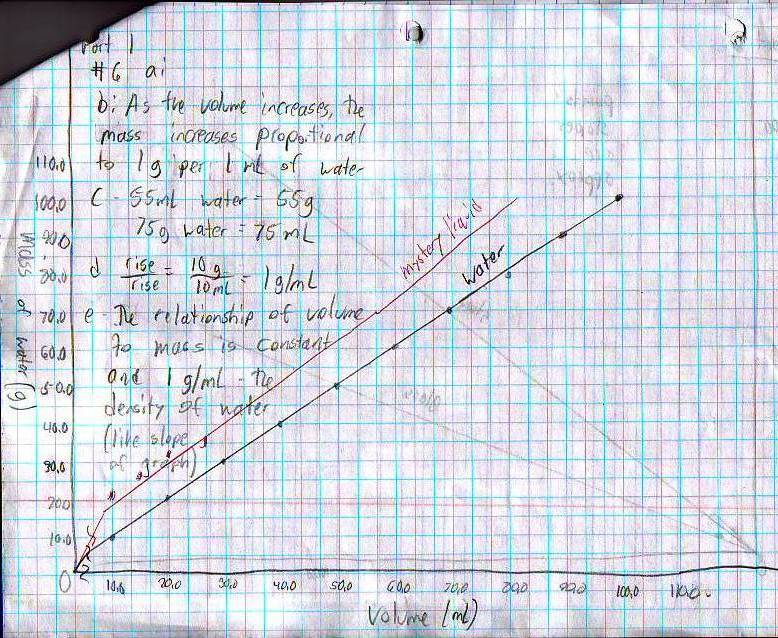 Part 1
#6 ai
b: As the volume increases, the
mass increases proportional
to 1g per 1 mL of water
C - 55ml water = 55g
75g water = 75mL
d rise/rise = 10g/10mL = 1g/mL
e - The relationship of volume
to mass is constant
and 1 g/mL - the
density of water
(like slope
of graph)
mystery liquid
water
Mass of water (g)
110.0
100.0
90.0
80.0
70.0
60.0
50.0
40.0
30.0
20.0
10.0
0
10.0 20.0 30.0 40.0 50.0 60.0 70.0 80.0 90.0 100.0 110.0
Volume (ml)